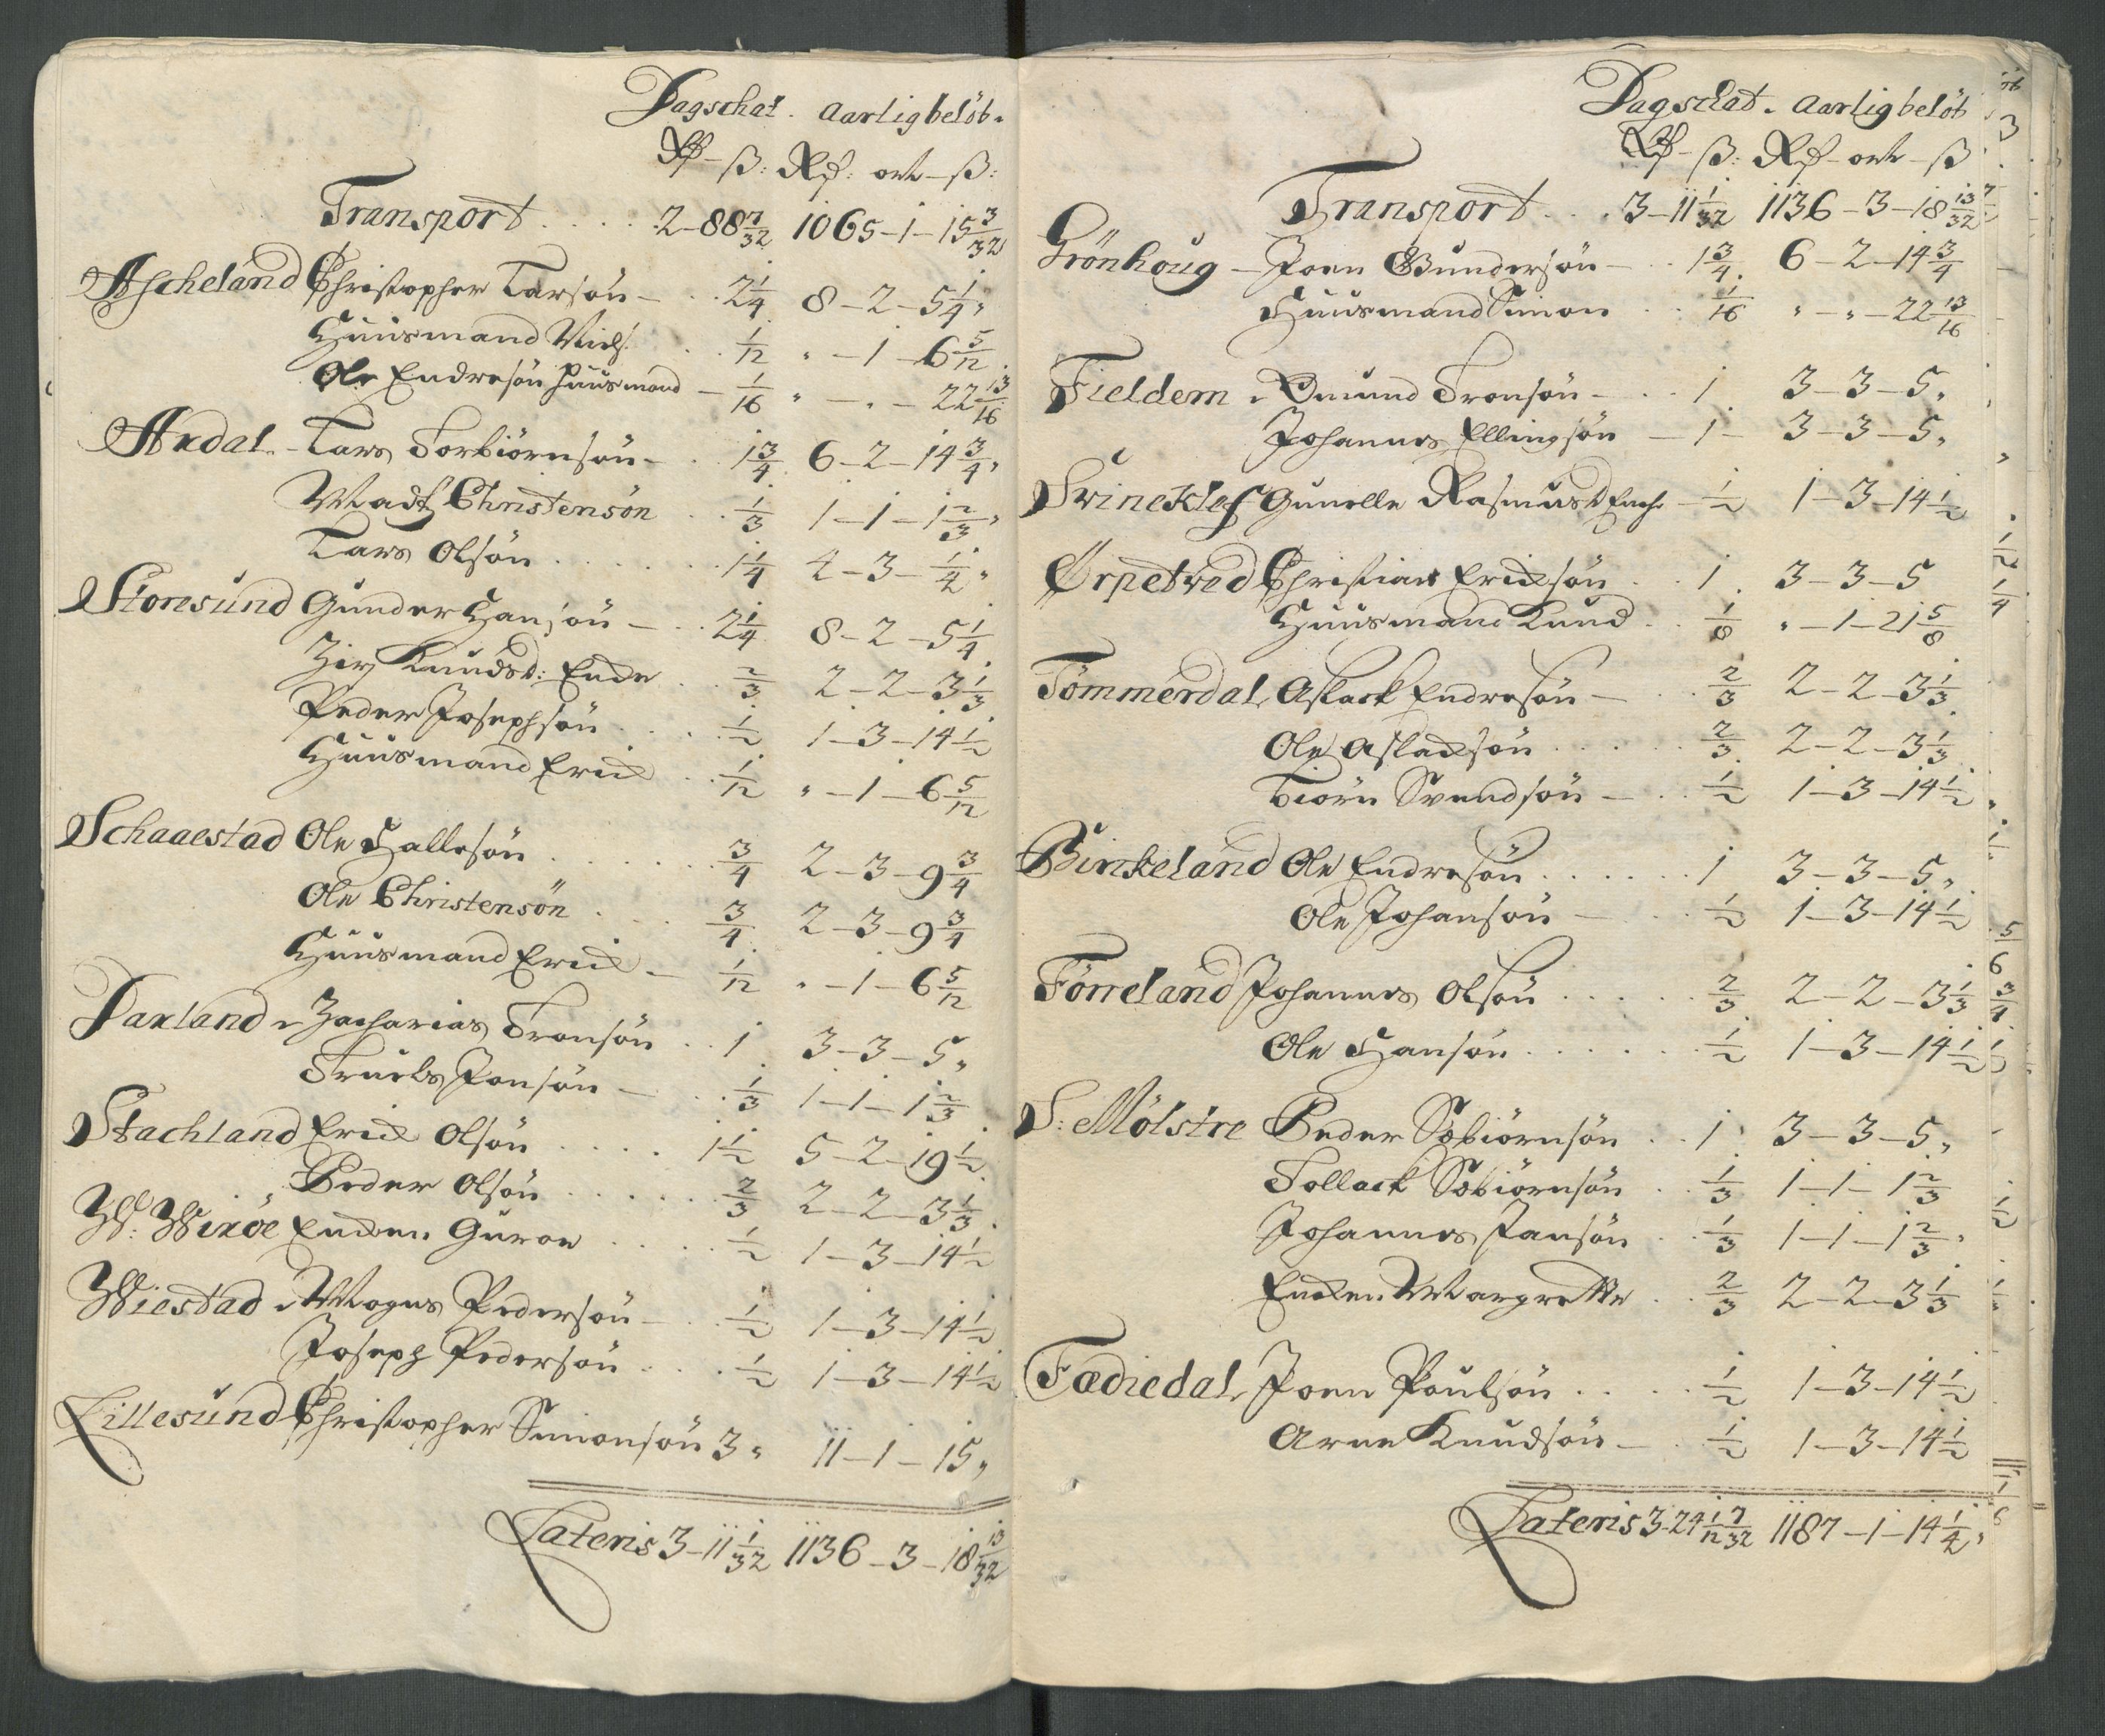 Dagschat. aarlig belöb.
Rß – ß: Rß: ort – ß:
Transport . . . . . 2–88 7/32 1065–1–15 3/32
Ascheland Christopher Larsön – . . 2 1/4 8–2–5 1/4 „
Huusmand Niels . . 1/12 „ –1–6 5/12
Ole Endresön Huusmand – 1/16 „ – „ – 22 13/16
Axdal – Lars Torbiörnsön – . 1 3/4 6–2–14 3/4 „
Mads Christensön . . 1/3 1–1–1 2/3 „
Lars Olsön . . . . . . . 1 1/4 4–3–1/4 „
Storesund Gunder Hansön – . . 2 1/4 8–2–5 1/4
Zirj Knudsd: Encke . . 2/3 2–2–3 1/3
Peder Josephsön . . . . 1/2 1–3–14 1/2
Huusmand Erich . . 1/12 „ –1–6 5/12
Schaaestad Ole Hallesön . . . . . . . 3/4 2–3–9 3/4
Ole Christensön . . . . 3/4 2–3–9 3/4
Huusmand Erich – 1/12 „ –1–6 5/12
Daxland „ Zacharias Tronsön . . 1 3–3–5 „
Truels Jonsön – . . 1/3 1–1–1 2/3
Stachland Erich Olsön . . . . . 1 1/2 5–2–19 1/2
Peder Olsön . . . . . . 2/3 2–2–3 1/3
W: Wixöe Encken Guroe . . . . . 1/2 1–3–14 1/2
Wiestad „ Mogens Pedersön – . . 1/2 1–3–14 1/2
Joseph Pedersön . . . . 1/2 1–3–14 1/2
Lillesund Christopher Simonsön 3 „ 11–1–15 „
Lateris 3–11 1/32 1136–3–18 13/32
Dagschat. aarlig belöb
Rß – ß: Rß – ort – ß
Transport . . . 3–11 1/32 1136–3–18 13/32
Grönhoug – Joen Gundersön – . . 1 3/4 6–2–14 3/4
Huusmand Simon . . 1/16 „ – „ –22 13/16
Fieldem „ Omund Tronsön – . . 1 3–3–5 „
Johannes Ellingsön – 1 – 3–3–5 „
Svineklef Gunelle Rasmusd Ench. – 1/2 1–3–14 1/2
Ørpetved Christian Erichsön . . 1 3–3–5
Huusmand Knud . . 1/8 „ –1–21 5/8
Tömmerdal Aslack Endresön – . . 2/3 2–2–3 1/3
Ole Aslachsön . . . . . . 2/3 2–2–3 1/3
Biörn Svendsön – . . 1/2 1–3–14 1/2
Birkeland Ole Endresön . . . . . . 1 3–3–5 „
Ole Johansön – . . 1/2 1–3–14 1/2
Förreland Johannes Olsön . . . . . . 2/3 2–2–3 1/3
Ole Hansön . . . . . . . 1/2 1–3–14 1/2
S: Mölstre Peder Söbiörnsön . . 1 3–3–5 „
Tollack Söbiörnsön . . 1/3 1–1–1 2/3
Johannes Jansön . . 1/3 1–1–1 2/3 „
Encken Margrette . . 2/3 2–2–3 1/3
Fædiedal Joen Poulsön . . . . . 1/2 1–3–14 1/2
Arne Knudsön – . . 1/2 1–3–14 1/2
Lateris 3–24 1/12 7/32 1187–1–14 1/4 „